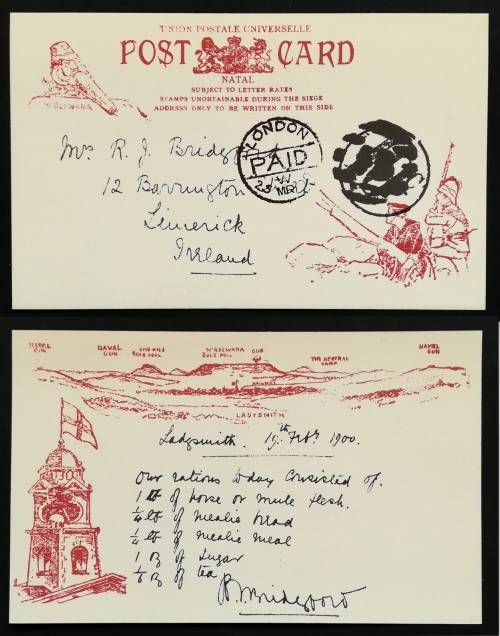 UNION POSTALE UNIVERSELLE
POST CARD
NATAL
SUBJECT TO LETTER RATES
STAMPS UNOBTAINABLE DURING THE SIEGE
ADDRESS ONLY TO BE WRITTEN ON THIS SIDE
Mrs R. J. Bridgford
LONDON
PAID
12 Barrington
Limerick
Ireland
NAVAL
GUN
M'BULWANA
GUN
NAVAL
GUN
THE GENERAL
CAMP
LADYSMITH
Ladysmith. 19th Feby 1900.
Our rations today consisted of.
1 lb of horse or mule flesh.
1/4 lb of mealie bread
1/4 lb of mealie meal
1 oz of sugar
1/6 oz of tea